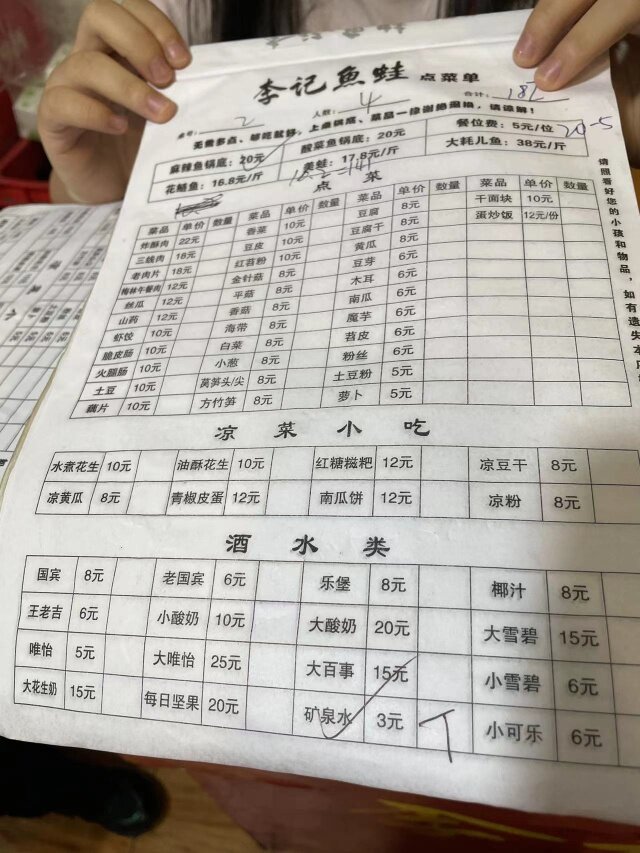 李记魚蛙 点菜单
合计:
桌号: 2 人数: 4
无需多点、够吃就好,上桌锅底、菜品一律谢绝退换,请谅解!
麻辣鱼锅底:20元 酸菜鱼锅底:20元 餐位费:5元/位
花鲢鱼:16.8元/斤 美蛙:17.8元/斤 大耗儿鱼:38元/斤
点 菜
菜品 单价 数量 菜品 单价 数量 菜品 单价 数量 菜品 单价 数量
炸酥肉 22元 香菜 10元 豆腐 8元 干面块 10元
三线肉 18元 豆皮 10元 豆腐干 8元 蛋炒饭 12元/份
老肉片 18元 红苕粉 10元 黄瓜 8元
梅林午餐肉 12元 金针菇 8元 豆芽 6元
丝瓜 12元 平菇 8元 木耳 6元
山药 12元 香菇 8元 南瓜 6元
虾饺 10元 海带 8元 魔芋 6元
脆皮肠 10元 白菜 8元 苕皮 6元
火腿肠 10元 小葱 8元 粉丝 6元
土豆 10元 莴笋头/尖 8元 土豆粉 5元
藕片 10元 方竹笋 8元 萝卜 5元
凉 菜 小 吃
水煮花生 10元 油酥花生 10元 红糖糍粑 12元 凉豆干 8元
凉黄瓜 8元 青椒皮蛋 12元 南瓜饼 12元 凉粉 8元
酒 水 类
国宾 8元 老国宾 6元 乐堡 8元 椰汁 8元
王老吉 6元 小酸奶 10元 大酸奶 20元 大雪碧 15元
唯怡 5元 大唯怡 25元 大百事 15元 小雪碧 6元
大花生奶 15元 每日坚果 20元 矿泉水 3元 小可乐 6元
请照看好您的小孩和物品,如有遗失本